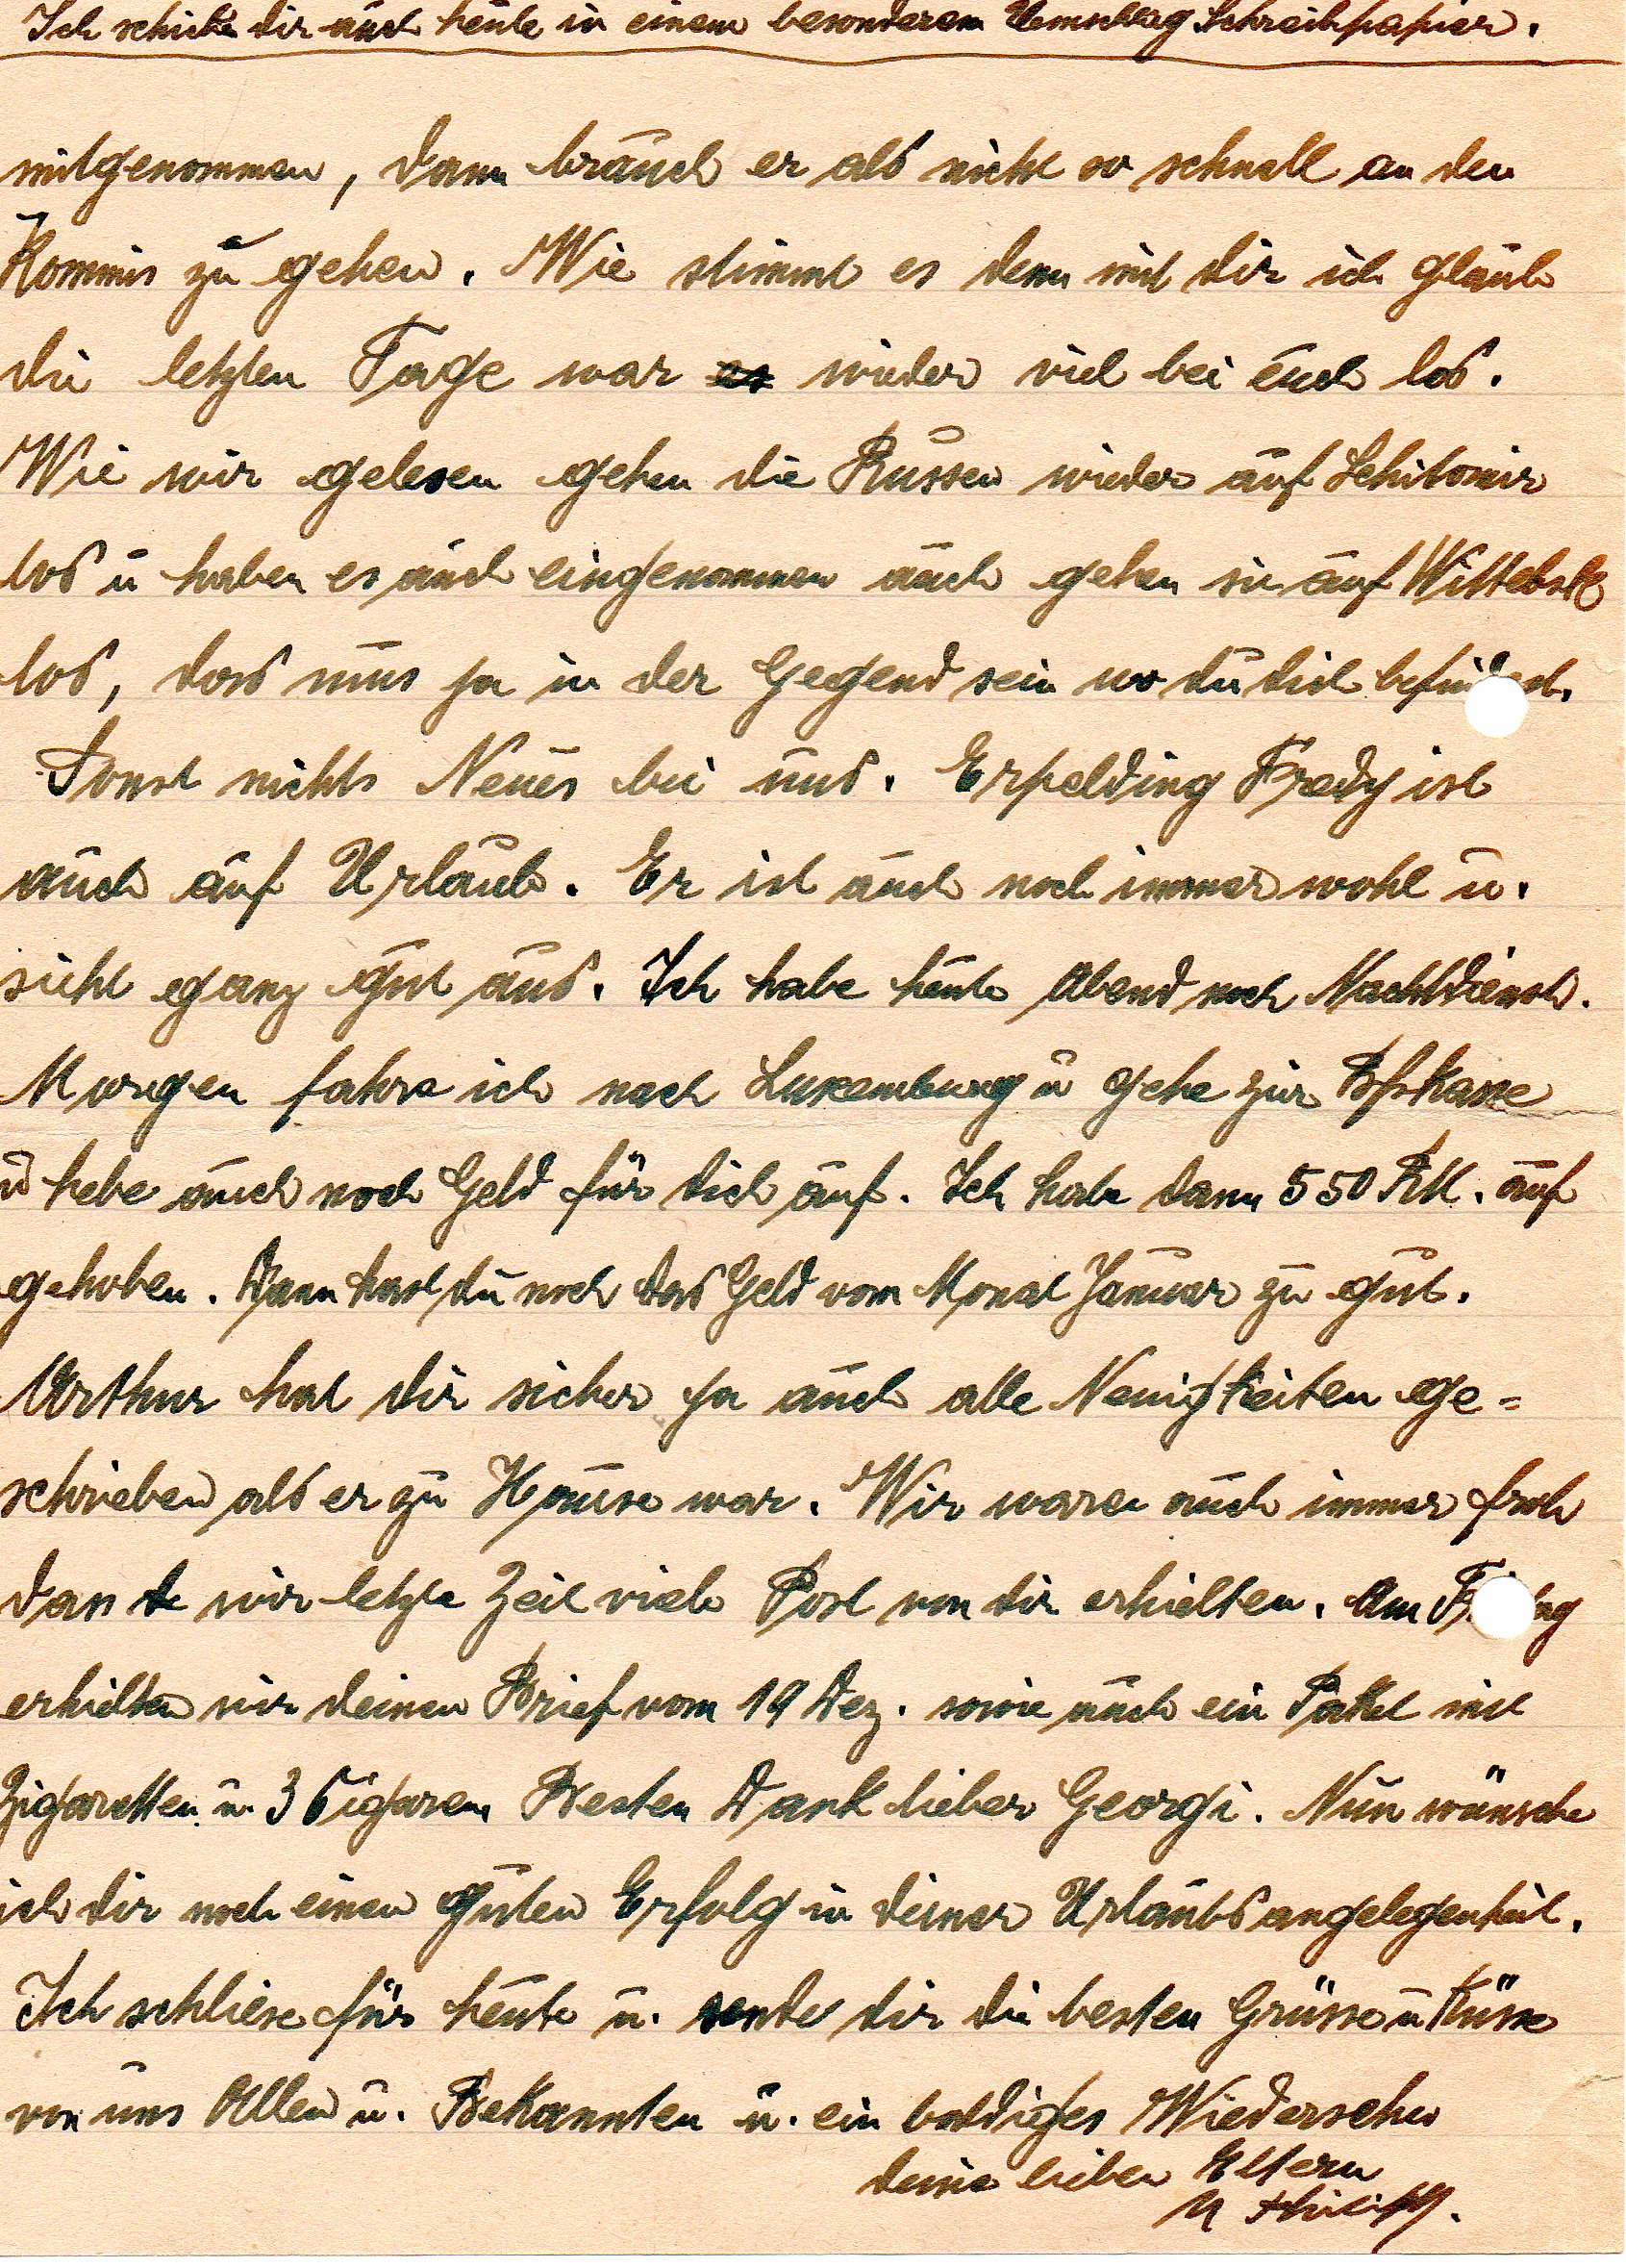 Ich schicke dir auch heute in einem besonderem Umschlag Schreibpapier.
mitgenommen, dann brauch er als nicht so schnell an den
Kommis zu gehen. Wie stimmt es denn mit dir ich glaub
die letzten Tage war es wieder viel bei euch los.
Wie wir gelesen gehen die Russen wieder auf Schitomir
los u haben es auch eingenommen auch gehen sie auf Wittebsk
los, das mus ja in der Gegend sein wo du dich befindest.
Sonst nichts Neues bei uns. Erpelding Fredy ist
auch auf Urlaub. Er ist auch noch immer wohl u.
sieht ganz gut aus. Ich habe heute Abend noch Nachtdienst.
Morgen fahre ich nach Luxemburg u gehe zur
u hebe auch noch Geld für dich auf. Ich habe dann 550 RM. auf
gehoben. Dann hast du noch das Geld vom Monat Januar zu gut.
Arthur hat dir sicher ja auch alle Neuigkeiten ge=
schrieben als er zu Hause war. Wir waren auch immer froh
dan wir letzte Zeit viele Post von dir erhielten. Am Freitag
erhielten wir deinen Brief vom 19 Dez. sowie auch ein Paket mit
Zigaretten u. 3 Cigaren Besten Dank lieber Georgi. Nun wünsche
ich dir noch einen guten Erfolg in deiner Urlaubsangelegenheit.
Ich schliese für heute u. sende dir die besten Grüsse u Küsse
von uns Allen u. Bekannten u. ein baldiges Wiedersehn
deine lieben Eltern
u